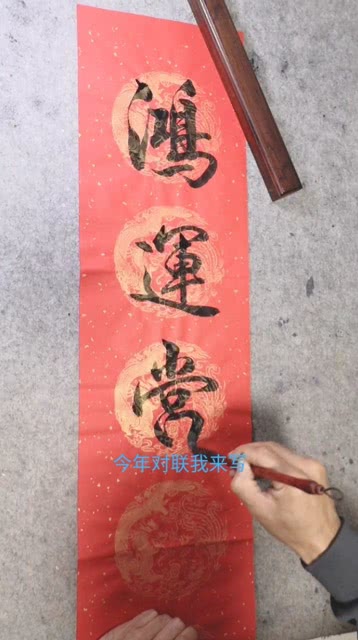 鴻
運
當
今年对联我来写